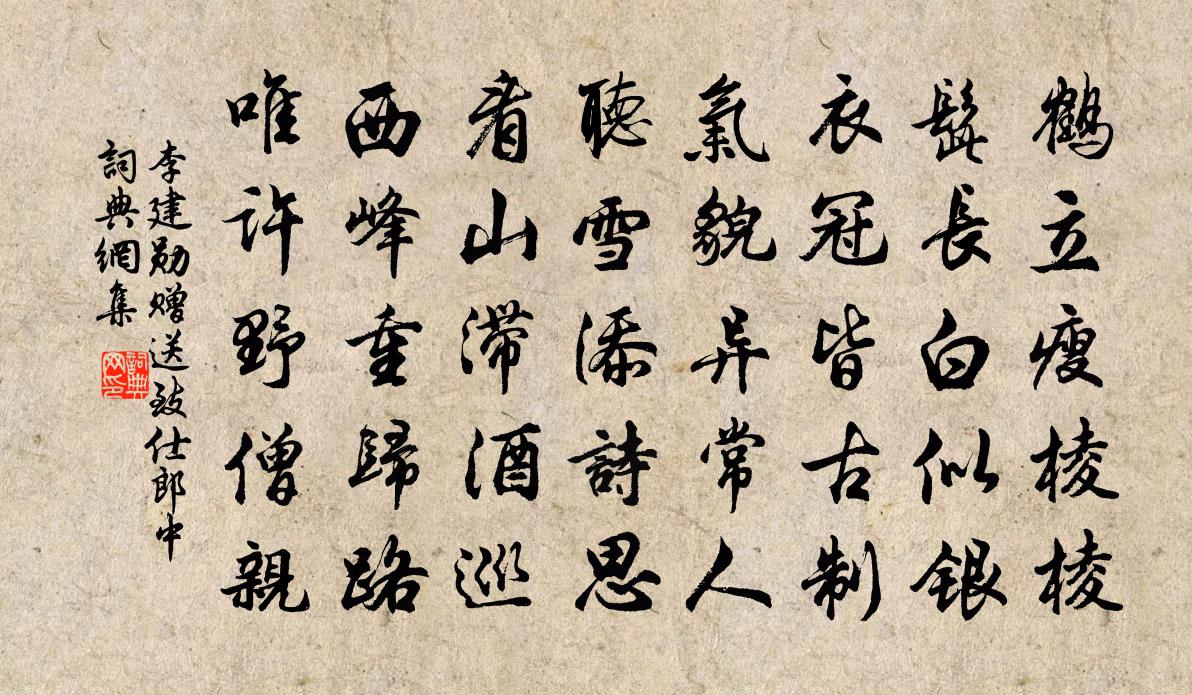 鶴立瘦棱棱
髭長白似銀
衣冠皆古制
氣貌异常人
聽雪添詩思
看山滯酒巡
西峰重歸路
唯許野僧親
李建勛赠送致仕郎中
詞典網集
詞典网印